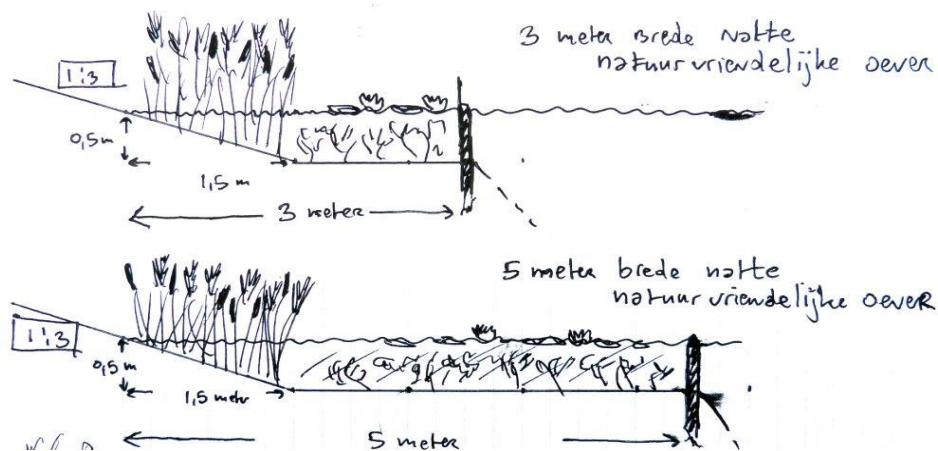 3 meter Brede Natte
natuurvriendelijke oever
1:3
0,5m
1,5 m
3 meter
5 meter brede natte
natuurvriendelijke oever
1:3
0,5m
1,5 metr
5 meter